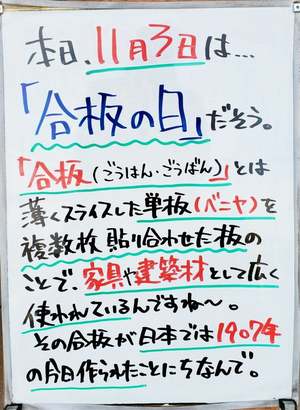 本日、11月3日は…
「合板の日」だそう。
「合板(ごうはん・ごうばん)」とは
薄くスライスした単板(ベニヤ)を
複数枚貼り合わせた板の
ことで、家具や建築材として広く
使われているんですね〜。
その合板が日本では1907年
の今日作られたことにちなんで。